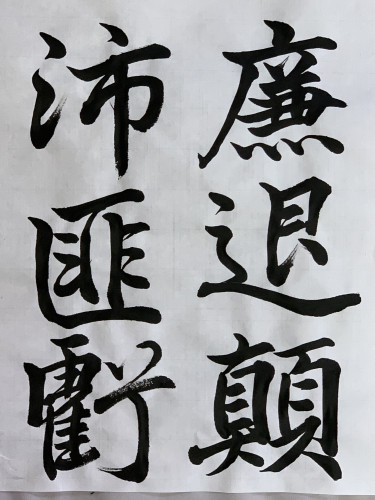 廉退顛
沛匪虧